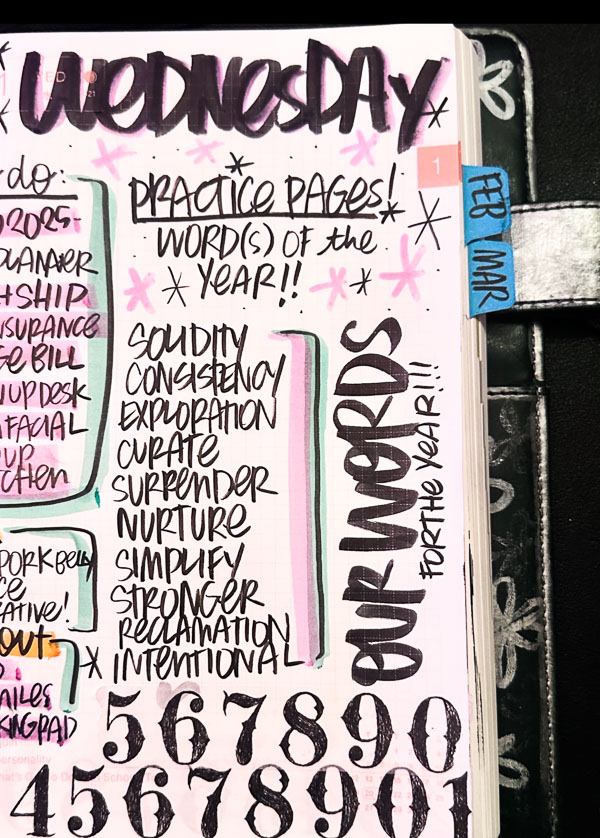 WEDNESDAY
1
FEB / MAR
do:
2025-
PLANNER
SHIP
INSURANCE
BILL
UP DESK
FACIAL
UP
PORK BELLY
OUT
MILES
PRACTICE PAGES!
WORD(S) OF the
YEAR!!
SOLIDITY
CONSISTENCY
EXPLORATION
CURATE
SURRENDER
NURTURE
SIMPLIFY
STRONGER
RECLAMATION
INTENTIONAL
OUR WORDS
FOR THE YEAR!!!
567890
45678901